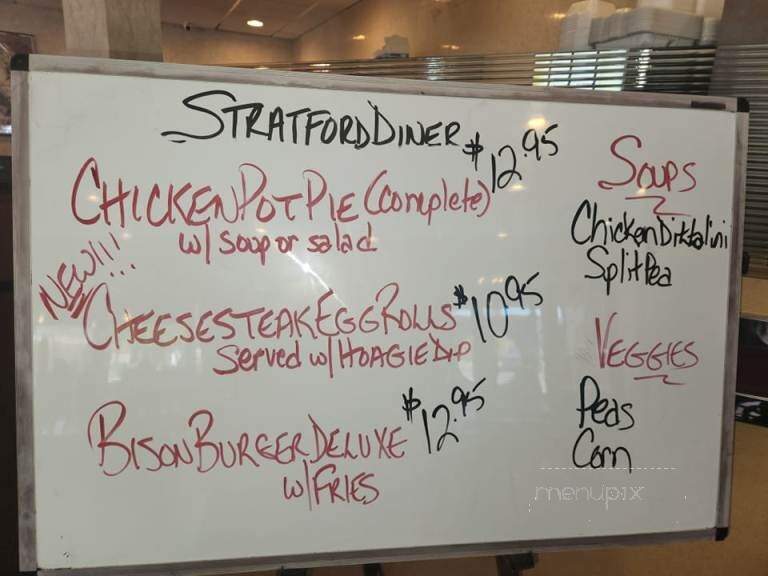 STRATFORD DINER
CHICKEN POT PIE (complete) $12.95
w/ soup or salad
NEW!!!
CHEESESTEAK EGG ROLLS $10.95
Served w/ HOAGIE DIP
BISON BURGER DELUXE $12.95
w/ FRIES
SOUPS
Chicken Ditktalini
Split Pea
VEGGIES
Peas
Corn
menupix